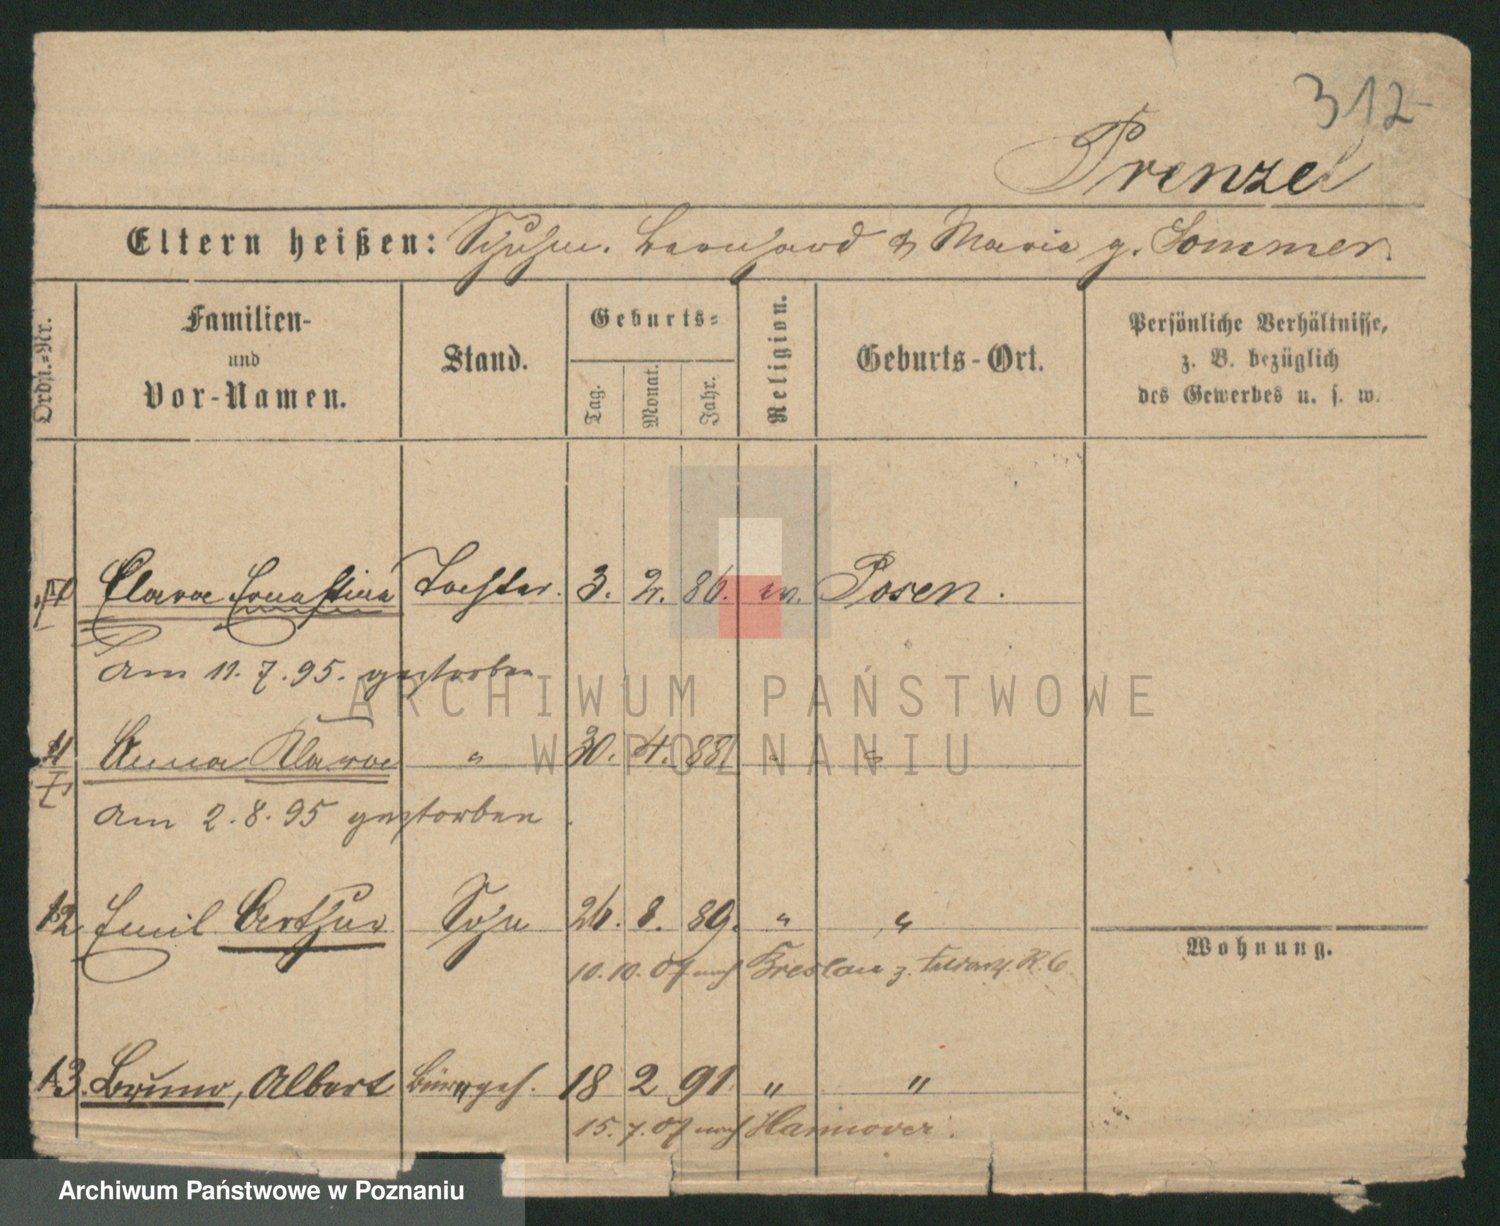 312
Prenzel
Eltern heißen: Schuhm. Bernhard & Maria g. Sommer.
Ordn.-Nr.
Familien-
und
Vor-Namen.
Stand.
Geburts-
Tag.
Monat.
Jahr.
Religion.
Geburts-Ort.
Persönliche Verhältnisse,
z. B. bezüglich
des Gewerbes u. s. w.
Clara Ernestine Tochter. 3. 2. 86. ev. Posen.
am 11.7.95. gestorben
ARCHIWUM PAŃSTWOWE
W POZNANIU
11 Anna Klara " 30. 4. 88 " "
am 2.8.95 gestorben
12 Emil Arthur Sohn 26. 8. 89. " "
Wohnung.
10.10.07 nach Breslau z. R. 6
13. Bruno, Albert Bürogeh. 18 2 91. " "
15.7.07 nach Hannover.
Archiwum Państwowe w Poznaniu